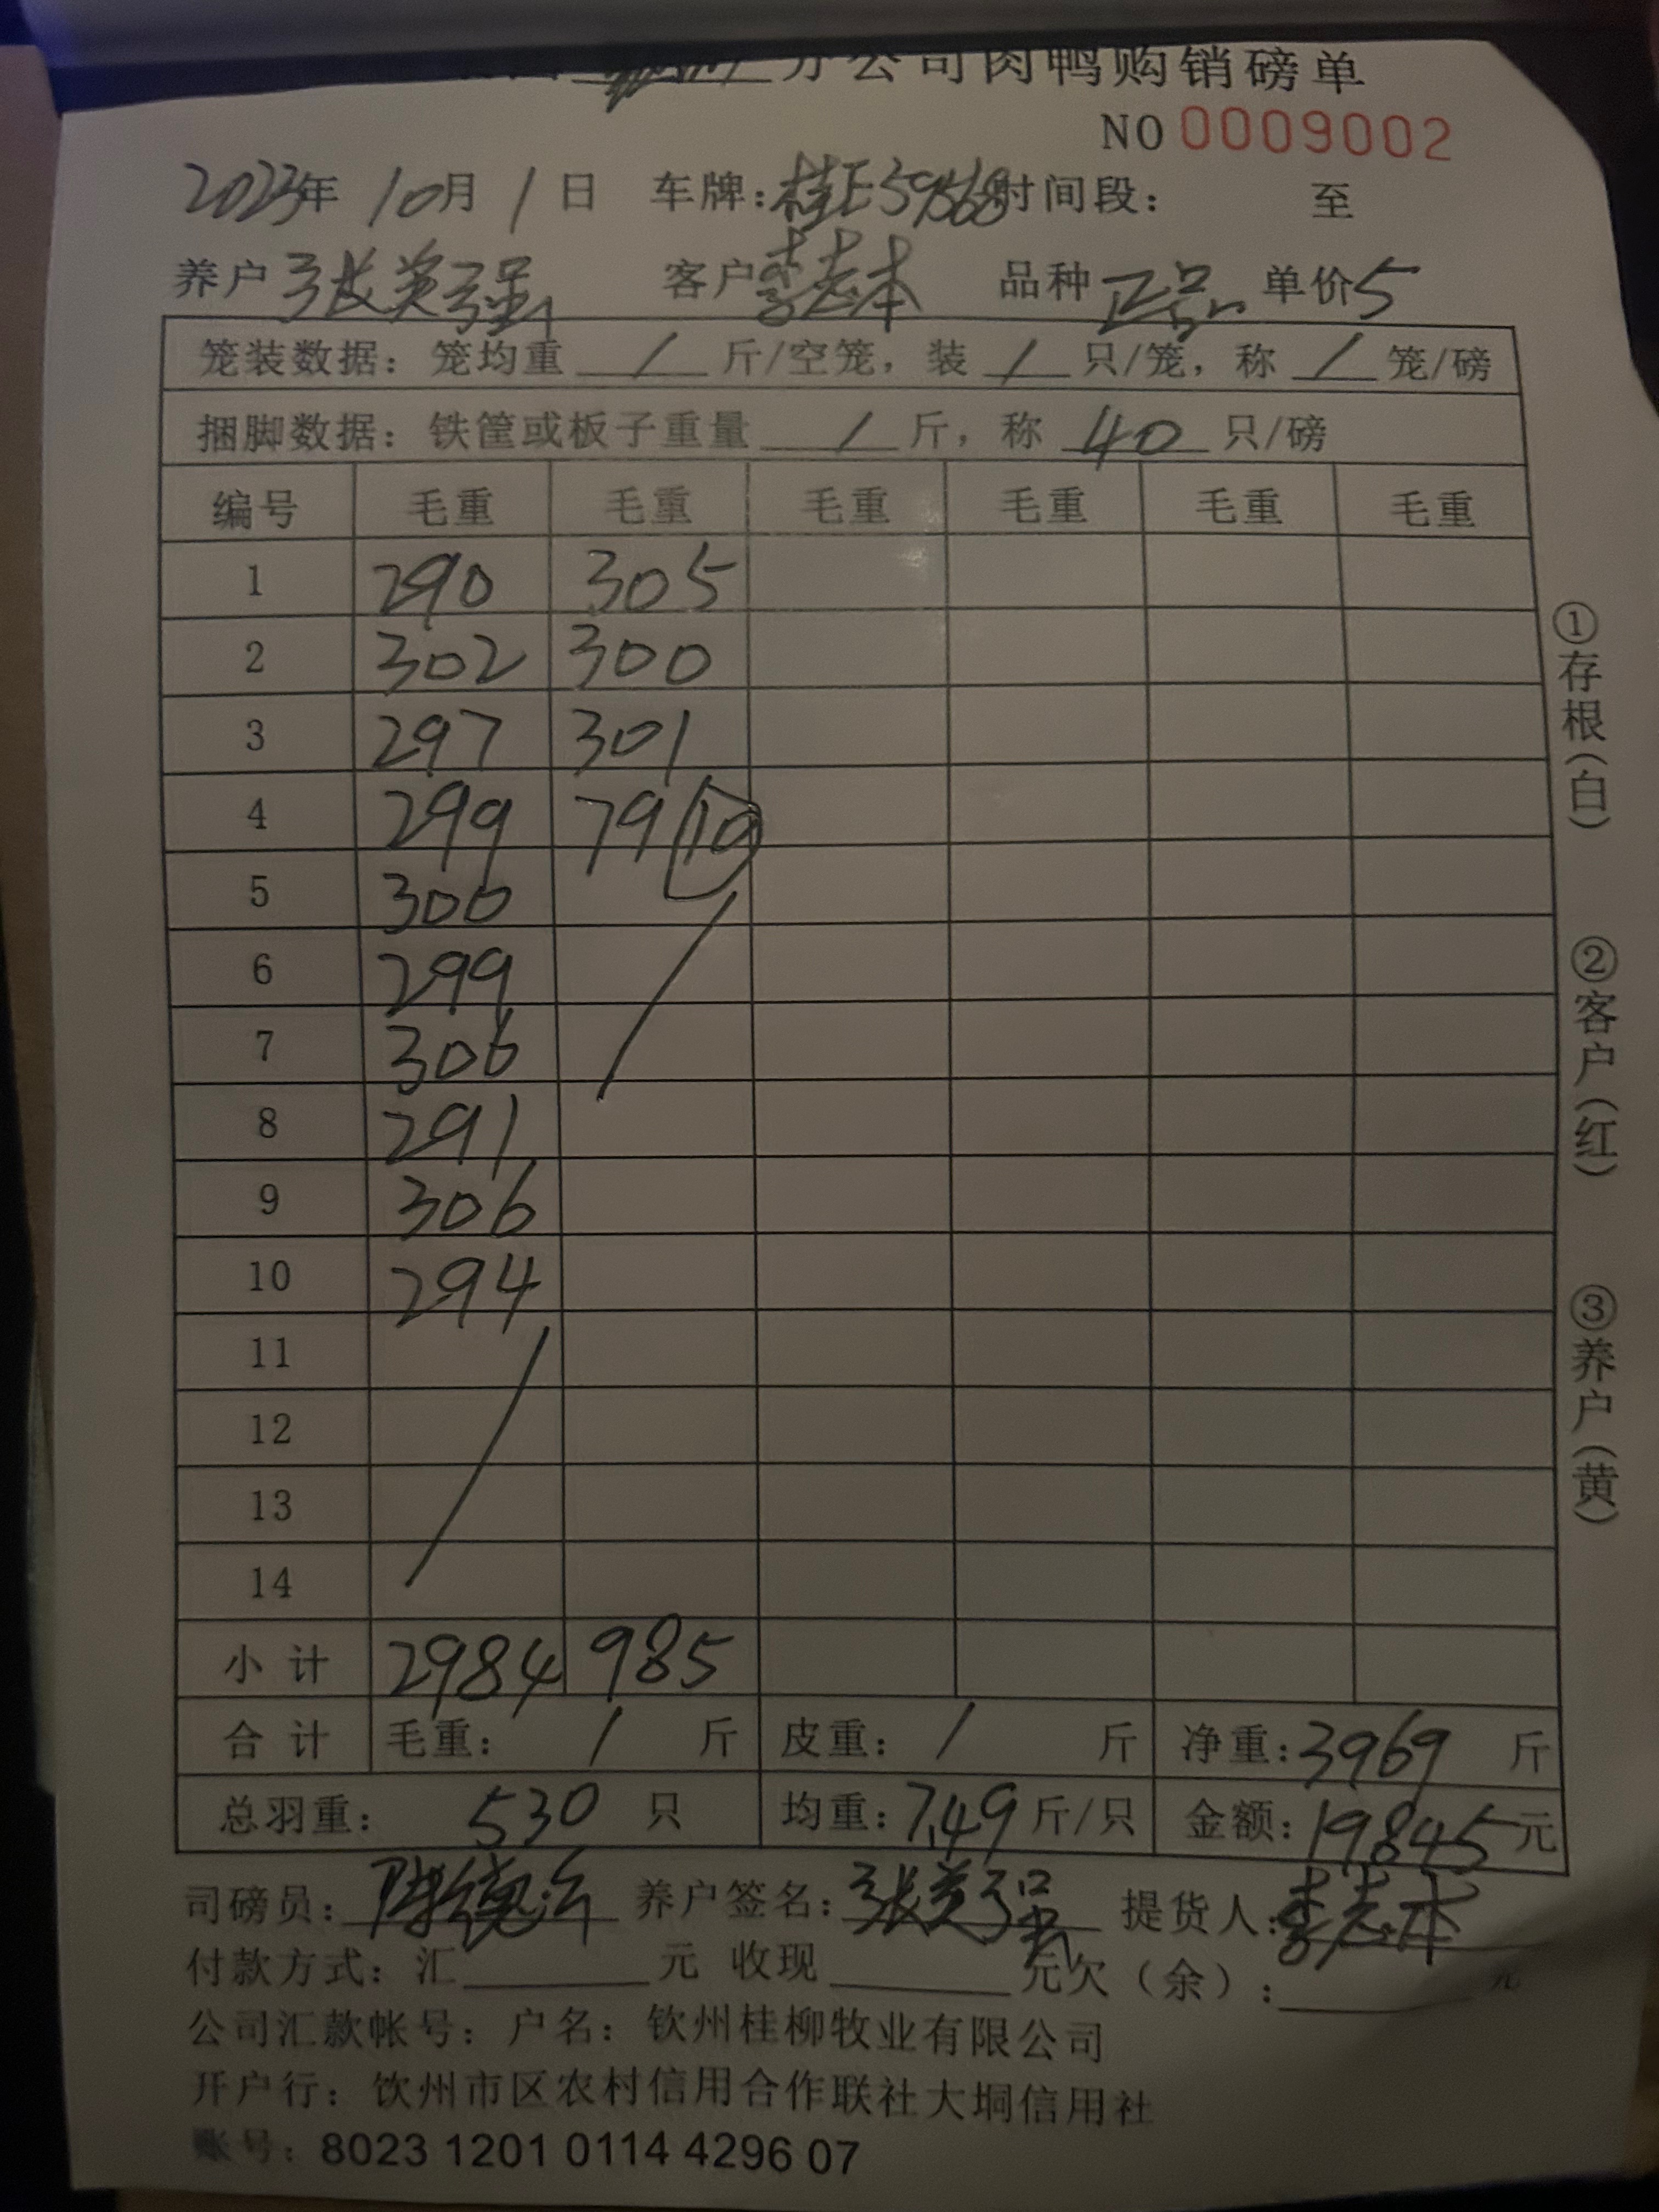 分公司肉鸭购销磅单
NO 0009002
2023年 10月 1日 车牌: 时间段: 至
养户 张英强 客户 李志本 品种 正品 单价 5
笼装数据: 笼均重 / 斤/空笼, 装 / 只/笼, 称 / 笼/磅
捆脚数据: 铁筐或板子重量 / 斤, 称 40 只/磅
编号 毛重 毛重 毛重 毛重 毛重 毛重
1 290 305
2 302 300
3 297 301
4 299 79 (10)
5 300
6 299
7 306
8 291
9 306
10 294
11
12
13
14
小计 2984 985
合计 毛重: / 斤 皮重: / 斤 净重: 3969 斤
总羽重: 530 只 均重: 7.49 斤/只 金额: 19845 元
司磅员: 养户签名: 张英强 提货人: 李志本
付款方式: 汇 元 收现 元 欠(余): 元
公司汇款帐号: 户名: 钦州桂柳牧业有限公司
开户行: 钦州市区农村信用合作联社大垌信用社
账号: 8023 1201 0114 4296 07
①存根(白)
②客户(红)
③养户(黄)